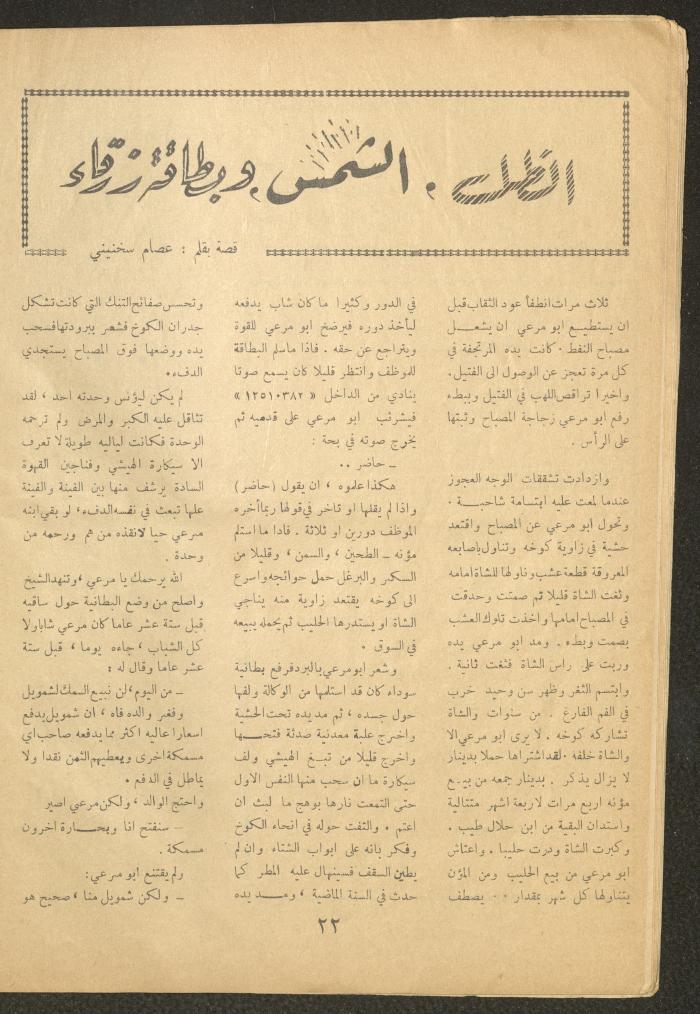 الظل، الشمس، وبطاقة زرقاء
قصة بقلم : عصام سخنيني
ثلاث مرات انطفأ عود الثقاب قبل
ان يستطيع ابو مرعي ان يشعــل
مصباح النفط . كانت يده المرتجفة في
كل مرة تعجز عن الوصول الى الفتيل.
واخيرا تراقص اللهب في الفتيل وببطء
رفع ابو مرعي زجاجة المصباح وثبتها
على الرأس .
وازدادت تشققات الوجه العجوز
عندما لمعت عليه ابتسامة شاحبــة .
وتحول ابو مرعي عن المصباح واقتعد
حشية في زاوية كوخه وتناول باصابعه
المعروقة قطعة عشب وناولها للشاة امامه
وثغت الشاة قليلا ثم صمتت وحدقت
في المصباح امامها واخذت تلوك العشب
بصمت وبطء . ومد ابو مرعي يده
وربت على راس الشاة فثغت ثانية .
وابتسم الثغر وظهر سن وحيد خرب
في الفم الفارغ . من سنوات والشاة
تشاركه كوخه . لا يرى ابو مرعي الا
والشاة خلفه . لقد اشتراها حملا بدينار
لا يزال يذكر . بدينار جمعه من بيـع
مؤنه اربع مرات لاربعة اشهر متتالية
واستدان البقية من ابن حلال طيب .
وكبرت الشاة ودرت حليبا . واعتاش
ابو مرعي من بيع الحليب ومن المؤن
يتناولها كل شهر بمقدار . . يصطف
في الدور وكثيرا ما كان شاب يدفعه
ليأخذ دوره فيرضخ ابو مرعي للقوة
ويتراجع عن حقه . فاذا ما سلم البطاقة
للموظف وانتظر قليلا كان يسمع صوتا
ينادي من الداخل « ١٢٥١٠٣٨٢ »
فيشرئب ابو مرعي على قدميه ثم
يخرج صوته في بحة :
ـ حاضر ..
هكذا علموه ، ان يقول (حاضر)
واذا لم يقلها او تاخر في قولها ربما أخره
الموظف دورين او ثلاثة . فاذا ما استلم
مؤنه ـ الطحين ، والسمن ، وقليلا من
السكر والبرغل حمل حوائجه واسرع
الى كوخه يقتعد زاوية منه يناجي
الشاة او يستدرها الحليب ثم يحمله يبيعه
في السوق .
وشعر ابو مرعي بالبرد فرفع بطانية
سوداء كان قد استلمها من الوكالة ولفها
حول جسده ، ثم مد يده تحت الحشية
واخرج علبة معدنية صدئة فتحــها
واخرج قليلا من تبـغ الهيشي ولف
سيكارة ما ان سحب منها النفس الاول
حتى التمعت نارها بوهج ما لبث ان
اعتم . والتفت حوله في انحاء الكوخ
وفكر بانه على ابواب الشتاء وان لم
يطين السقف فسينهال عليه المطر كما
حدث في السنة الماضية ، ومــد يده
وتحسس صفائح التنك التي كانت تشكل
جدران الكوخ فشعر ببرودتها فسحب
يده ووضعها فوق المصباح يستجدي
الدفء.
لم يكن لبؤنس وحدته احد ، لقد
تثاقل عليه الكبر والمرض ولم ترحمه
الوحدة فكانت لياليه طويلة لا تعرف
الا سيكارة الهيشي وفناجين القهوة
السادة يرشف منها بين الفينة والفينة
علها تبعث في نفسه الدفء، لو بقي ابنه
مرعي حيا لانقذه من هم ورحمه من
وحدة .
الله يرحمك يا مرعي ، وتنهد الشيخ
واصلح من وضع البطانية حول ساقيه
قبل ستة عشر عاما كان مرعي شابا ولا
كل الشباب ، جاءه يوما ، قبل ستة
عشر عاما وقال له :
ـ من اليوم ، لن نبيع السمك لشمويل
وفغر والده فاه ، ان شمويل يدفع
اسعارا عاليه اكثر مما يدفعه صاحب اي
مسمكة اخرى ويعطيهم الثمن نقدا ولا
يماطل في الدفع .
واحتج الوالد ، ولكن مرعي اصير
ـ سنفتح انا وبحــارة اخرون
مسمكة .
ولم يقتنع ابو مرعي:
ـ ولكن شمويل منا ، صحيح هو
٢٢